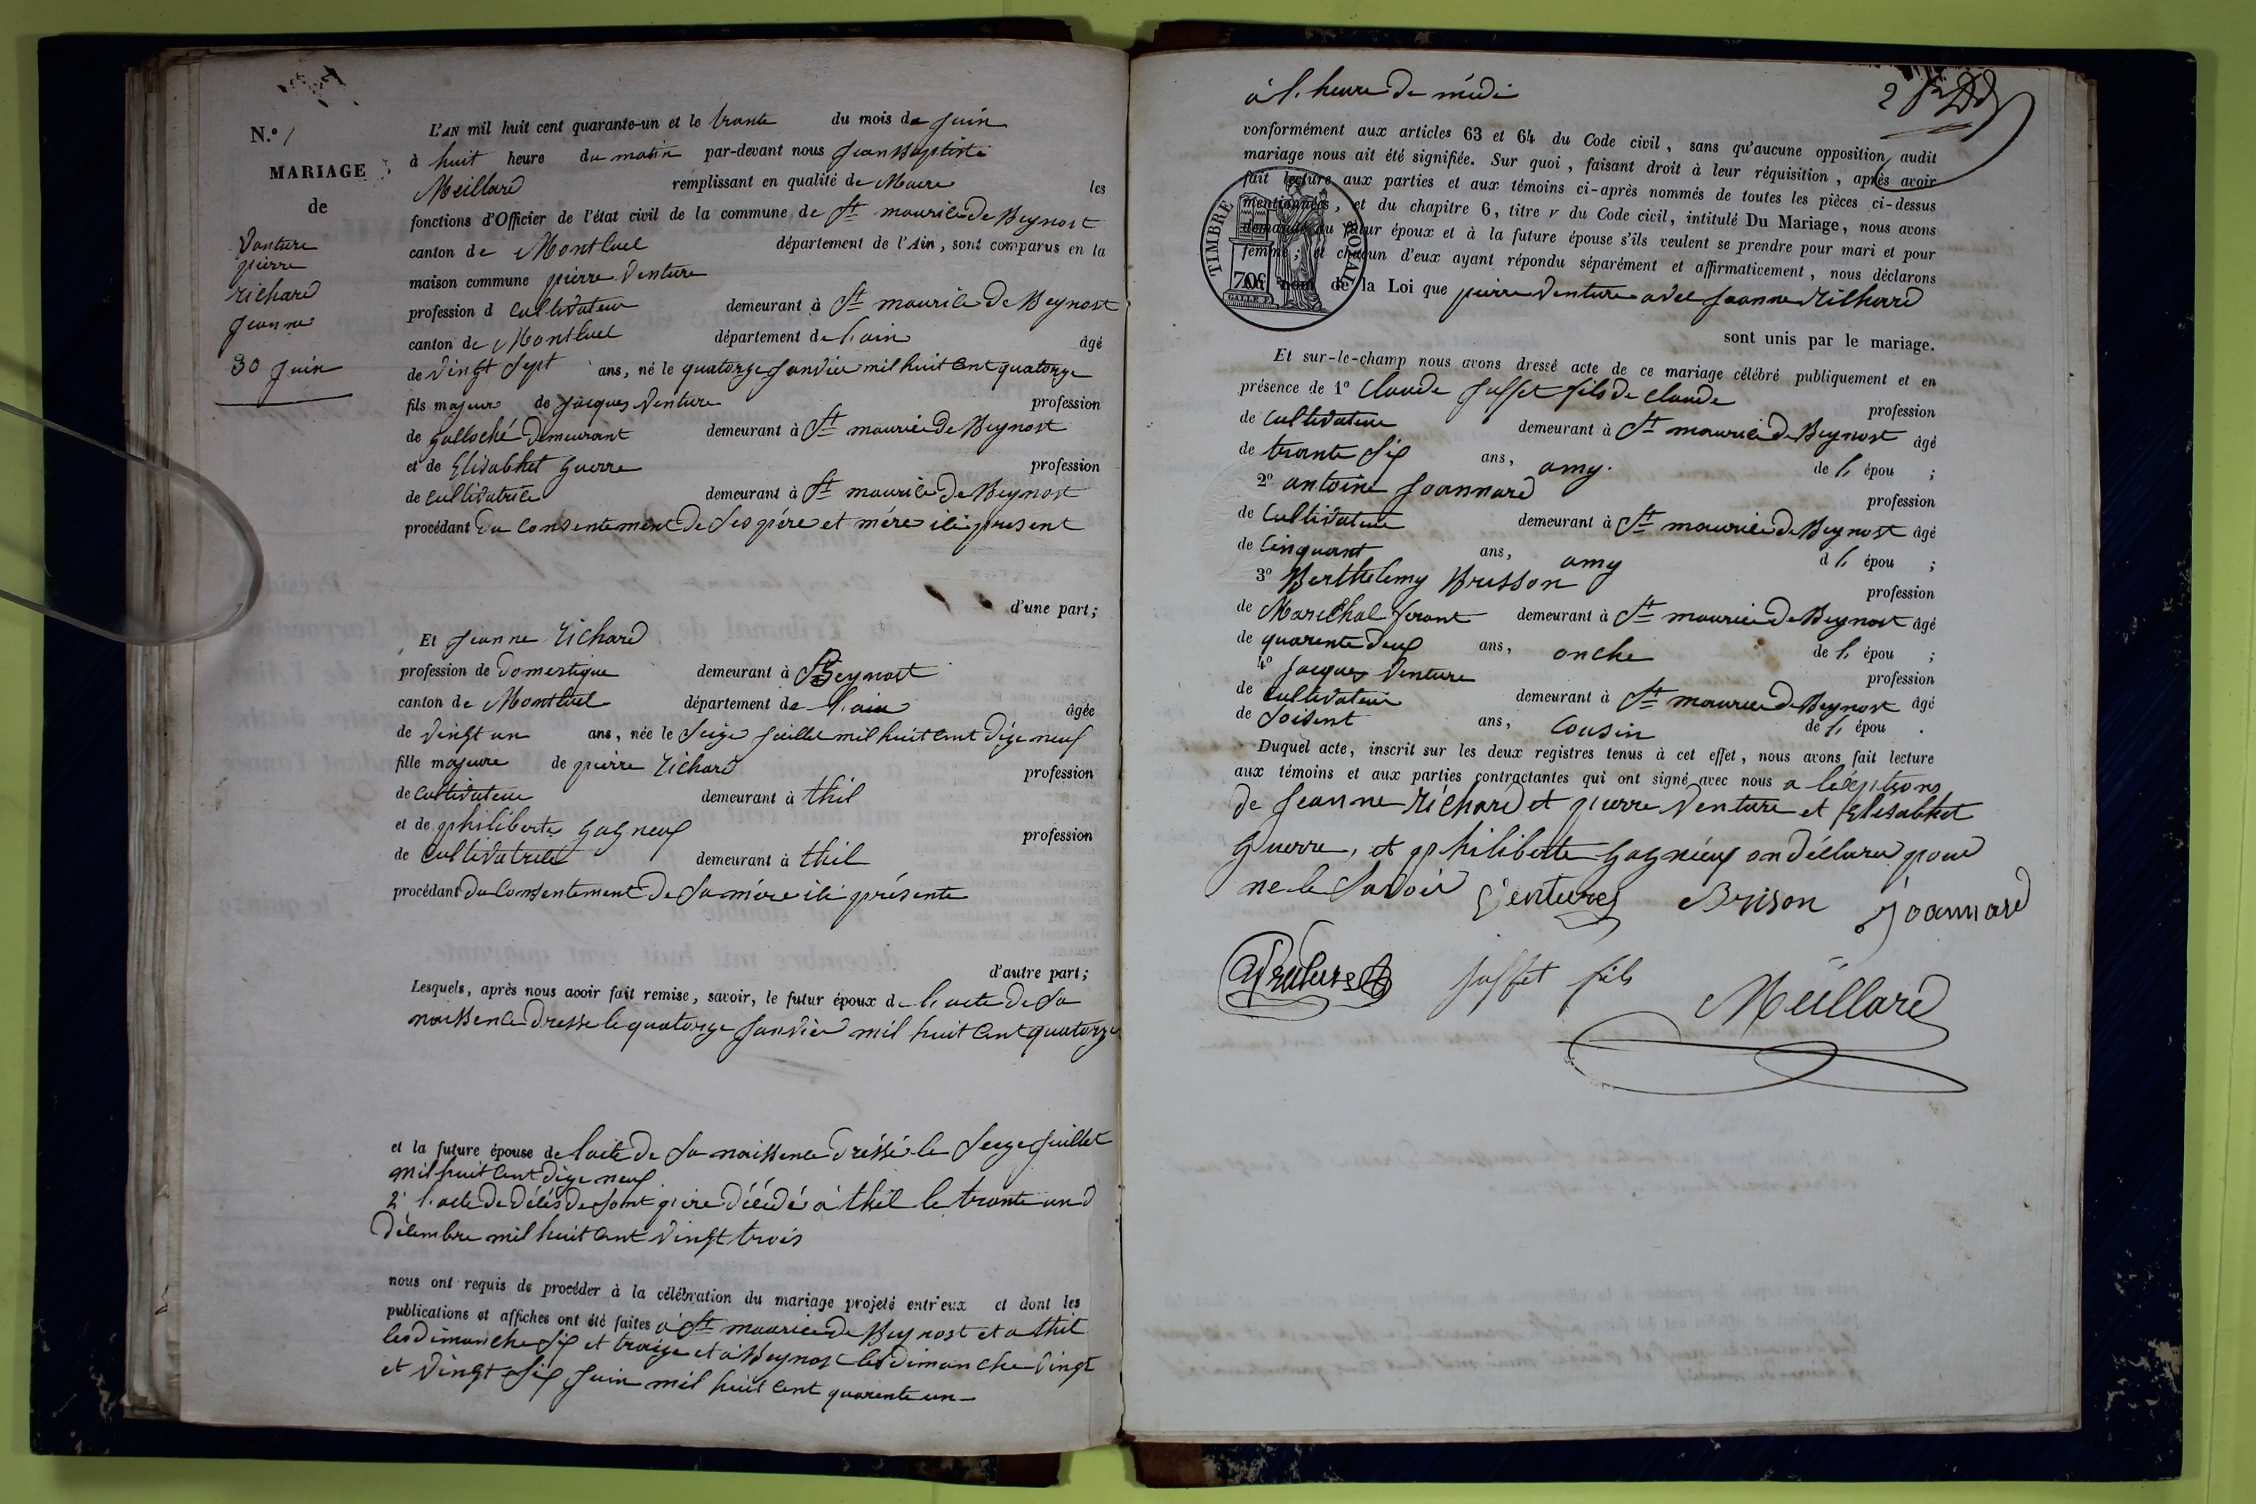 N.° 1
MARIAGE
de
Venture
pierre
richard
jeanne
30 juin
L'AN mil huit cent quarante-un et le trante du mois de juin
à huit heure du matin par-devant nous jean Baptiste
Meillard remplissant en qualité de Maire les
fonctions d'Officier de l'état civil de la commune de St maurice de Beynost
canton de Montluel département de l'Ain, sont comparus en la
maison commune pierre Venture
profession d cultivateur demeurant à St maurice de Beynost
canton de Montluel département de l'ain âgé
de vingt sept ans, né le quatorze janvier mil huit cent quatorze
fils majeur de jacques Venture profession
de galloché demeurant demeurant à St maurice de Beynost
et de Elisabhet guerre profession
de cultivatrice demeurant à St maurice de Beynost
procédant du consentement de ses père et mère ici present
d'une part;
Et jeanne richard
profession de domestique demeurant à Beynost
canton de Montluel département de l'ain âgée
de vingt un ans, née le seize juillet mil huit cent dize neuf
fille majeure de pierre richard profession
de cultivateur demeurant à thil
et de philiberte gagneux profession
de cultivatrice demeurant à thil
procédant du consentement de sa mère ici présente
d'autre part;
Lesquels, après nous avoir fait remise, savoir, le futur époux de l'acte de sa
naissence dresse le quatorze janvier mil huit cent quatorze
et la future épouse de l'acte de sa naissence dréssé le seize juillet
mil huit cent dize neuf
2° l'acte de décés de sont pire décédé à thil le trante un d
décembre mil huit cent vingt trois
nous ont requis de procéder à la célébration du mariage projeté entr'eux et dont les
publications et affiches ont été faites à St maurice de Beynost et a thil
les dimanche six et traize et à Beynost les dimanche vingt
et vingt six juin mil huit cent quarente un
à l'heure de midi
2
conformément aux articles 63 et 64 du Code civil, sans qu'aucune opposition audit
mariage nous ait été signifiée. Sur quoi, faisant droit à leur réquisition, après avoir
fait lecture aux parties et aux témoins ci-après nommés de toutes les pièces ci-dessus
mentionnées, et du chapitre 6, titre v du Code civil, intitulé Du Mariage, nous avons
demandé au futur époux et à la future épouse s'ils veulent se prendre pour mari et pour
femme; et chacun d'eux ayant répondu séparément et affirmativement, nous déclarons
Au nom de la Loi que pierre Venture avec jeanne richard
TIMBRE ROYAL
70c
sont unis par le mariage.
Et sur-le-champ nous avons dressé acte de ce mariage célébré publiquement et en
présence de 1° Claude juffet fils de claude profession
de cultivateur demeurant à St maurice de Beynost âgé
de trante six ans, amy de l' épou ;
2° antoine joannard profession
de cultivateur demeurant à St maurice de Beynost âgé
de cinquant ans, amy d l' épou ;
3° Berthelemy Brisson profession
de Marechal ferant demeurant à St maurice de Beynost âgé
de quarente deux ans, onche de l' épou ;
4° jacques Venture profession
de cultivateur demeurant à St maurice de Beynost âgé
de soisent ans, cousin de l' épou .
Duquel acte, inscrit sur les deux registres tenus à cet effet, nous avons fait lecture
aux témoins et aux parties contractantes qui ont signé avec nous a léxeptions
de jeanne richard et pierre Venture et Elisabhet
guerre, et philiberte gagnieux on déclaré pour
ne le savoir Ventures Brison joannard
juffet fils
Meillard